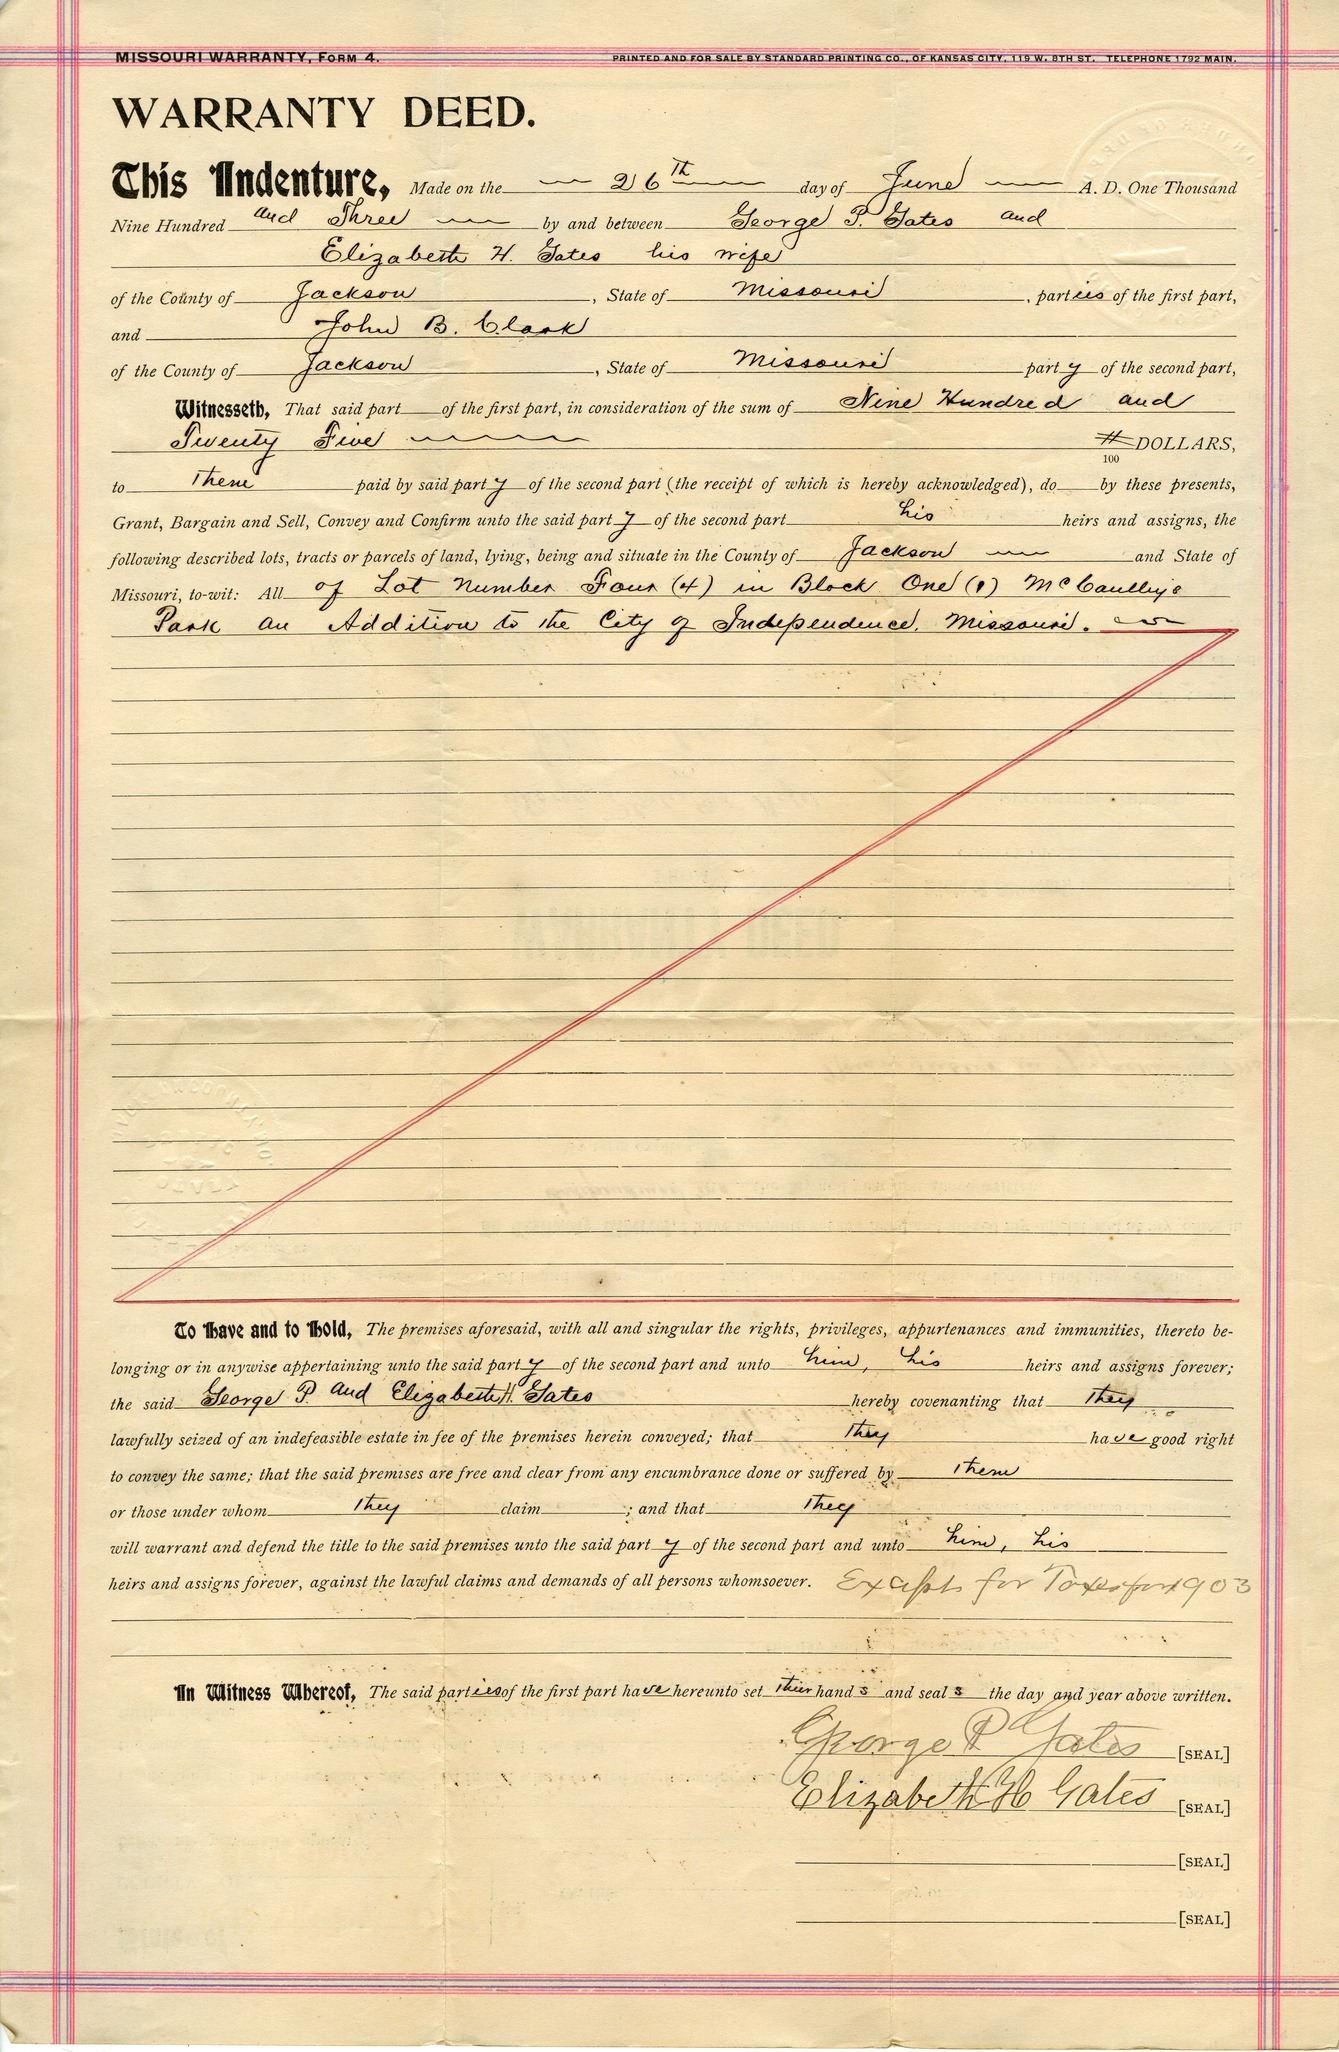 MISSOURI WARRANTY, FORM 4. PRINTED AND FOR SALE BY STANDARD PRINTING CO., OF KANSAS CITY, 119 W. 8TH ST. TELEPHONE 1792 MAIN.
WARRANTY DEED.
This Indenture, Made on the 26th day of June A. D. One Thousand
Nine Hundred and Three by and between George P. Gates and
Elizabeth H. Gates his wife
of the County of Jackson, State of Missouri, parties of the first part,
and John B. Clark
of the County of Jackson, State of Missouri party of the second part,
Witnesseth, That said part of the first part, in consideration of the sum of Nine Hundred and
Twenty Five 100 DOLLARS,
to them paid by said party of the second part (the receipt of which is hereby acknowledged), do by these presents,
Grant, Bargain and Sell, Convey and Confirm unto the said party of the second part his heirs and assigns, the
following described lots, tracts or parcels of land, lying, being and situate in the County of Jackson and State of
Missouri, to-wit: All of Lot Number Four (4) in Block One (1) McCaulley's
Park an Addition to the City of Independence, Missouri.
To Have and to Hold, The premises aforesaid, with all and singular the rights, privileges, appurtenances and immunities, thereto be-
longing or in anywise appertaining unto the said party of the second part and unto him, his heirs and assigns forever;
the said George P. and Elizabeth H. Gates hereby covenanting that they
lawfully seized of an indefeasible estate in fee of the premises herein conveyed; that they have good right
to convey the same; that the said premises are free and clear from any encumbrance done or suffered by them
or those under whom they claim ; and that they
will warrant and defend the title to the said premises unto the said party of the second part and unto him, his
heirs and assigns forever, against the lawful claims and demands of all persons whomsoever. Excepts for Taxes for 1903
In Witness Whereof, The said parties of the first part have hereunto set their hands and seals the day and year above written.
George P Gates [SEAL]
Elizabeth H Gates [SEAL]
[SEAL]
[SEAL]